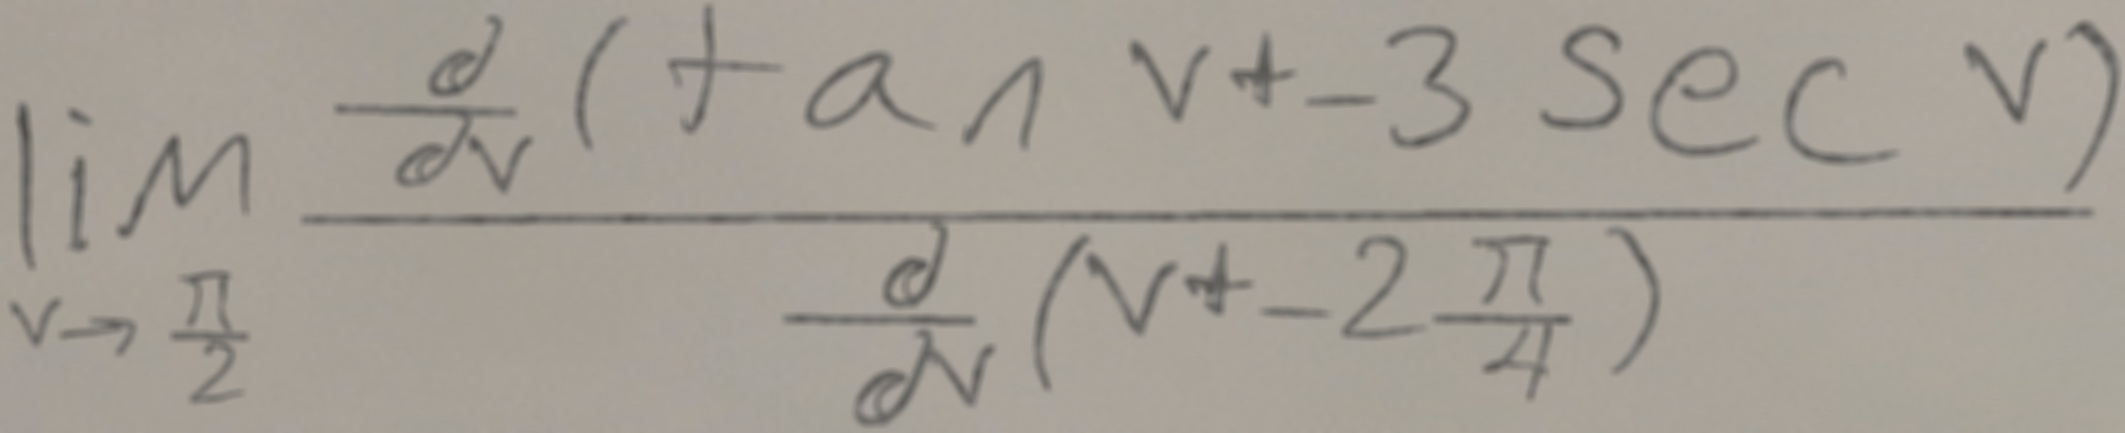 \lim_{v \to \frac{\pi}{2}} \frac{\frac{d}{dv}(\tan v + -3 \sec v)}{\frac{d}{dv}(v + -2\frac{\pi}{4})}